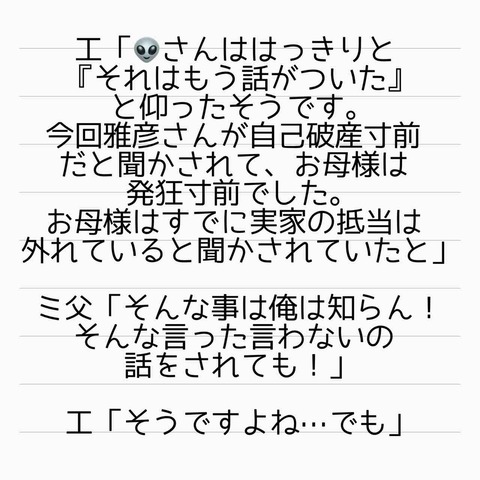 エ「👽さんははっきりと
『それはもう話がついた』
と仰ったそうです。
今回雅彦さんが自己破産寸前
だと聞かされて、お母様は
発狂寸前でした。
お母様はすでに実家の抵当は
外れていると聞かされていたと」
ミ父「そんな事は俺は知らん！
そんな言った言わないの
話をされても！」
エ「そうですよね…でも」